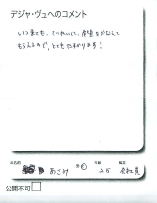 デジャ・ヴュへのコメント
いつ来ても、ていねいに、希望をかなえて
もらえるので、とてもたすかります!
お名前 あさみ 年齢 25 職業 会社員
公開不可□